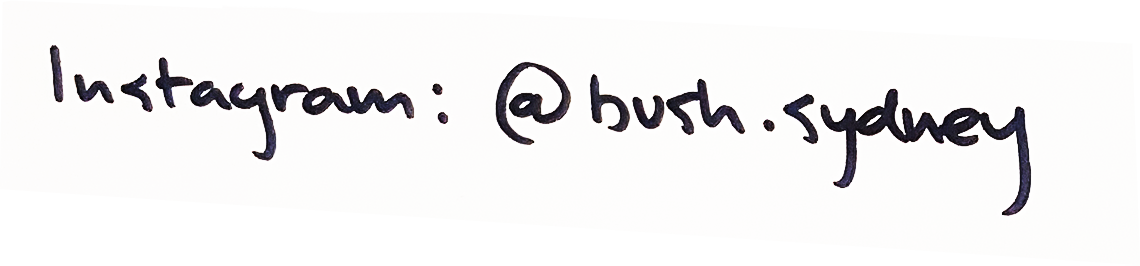 Instagram: @bush.sydney